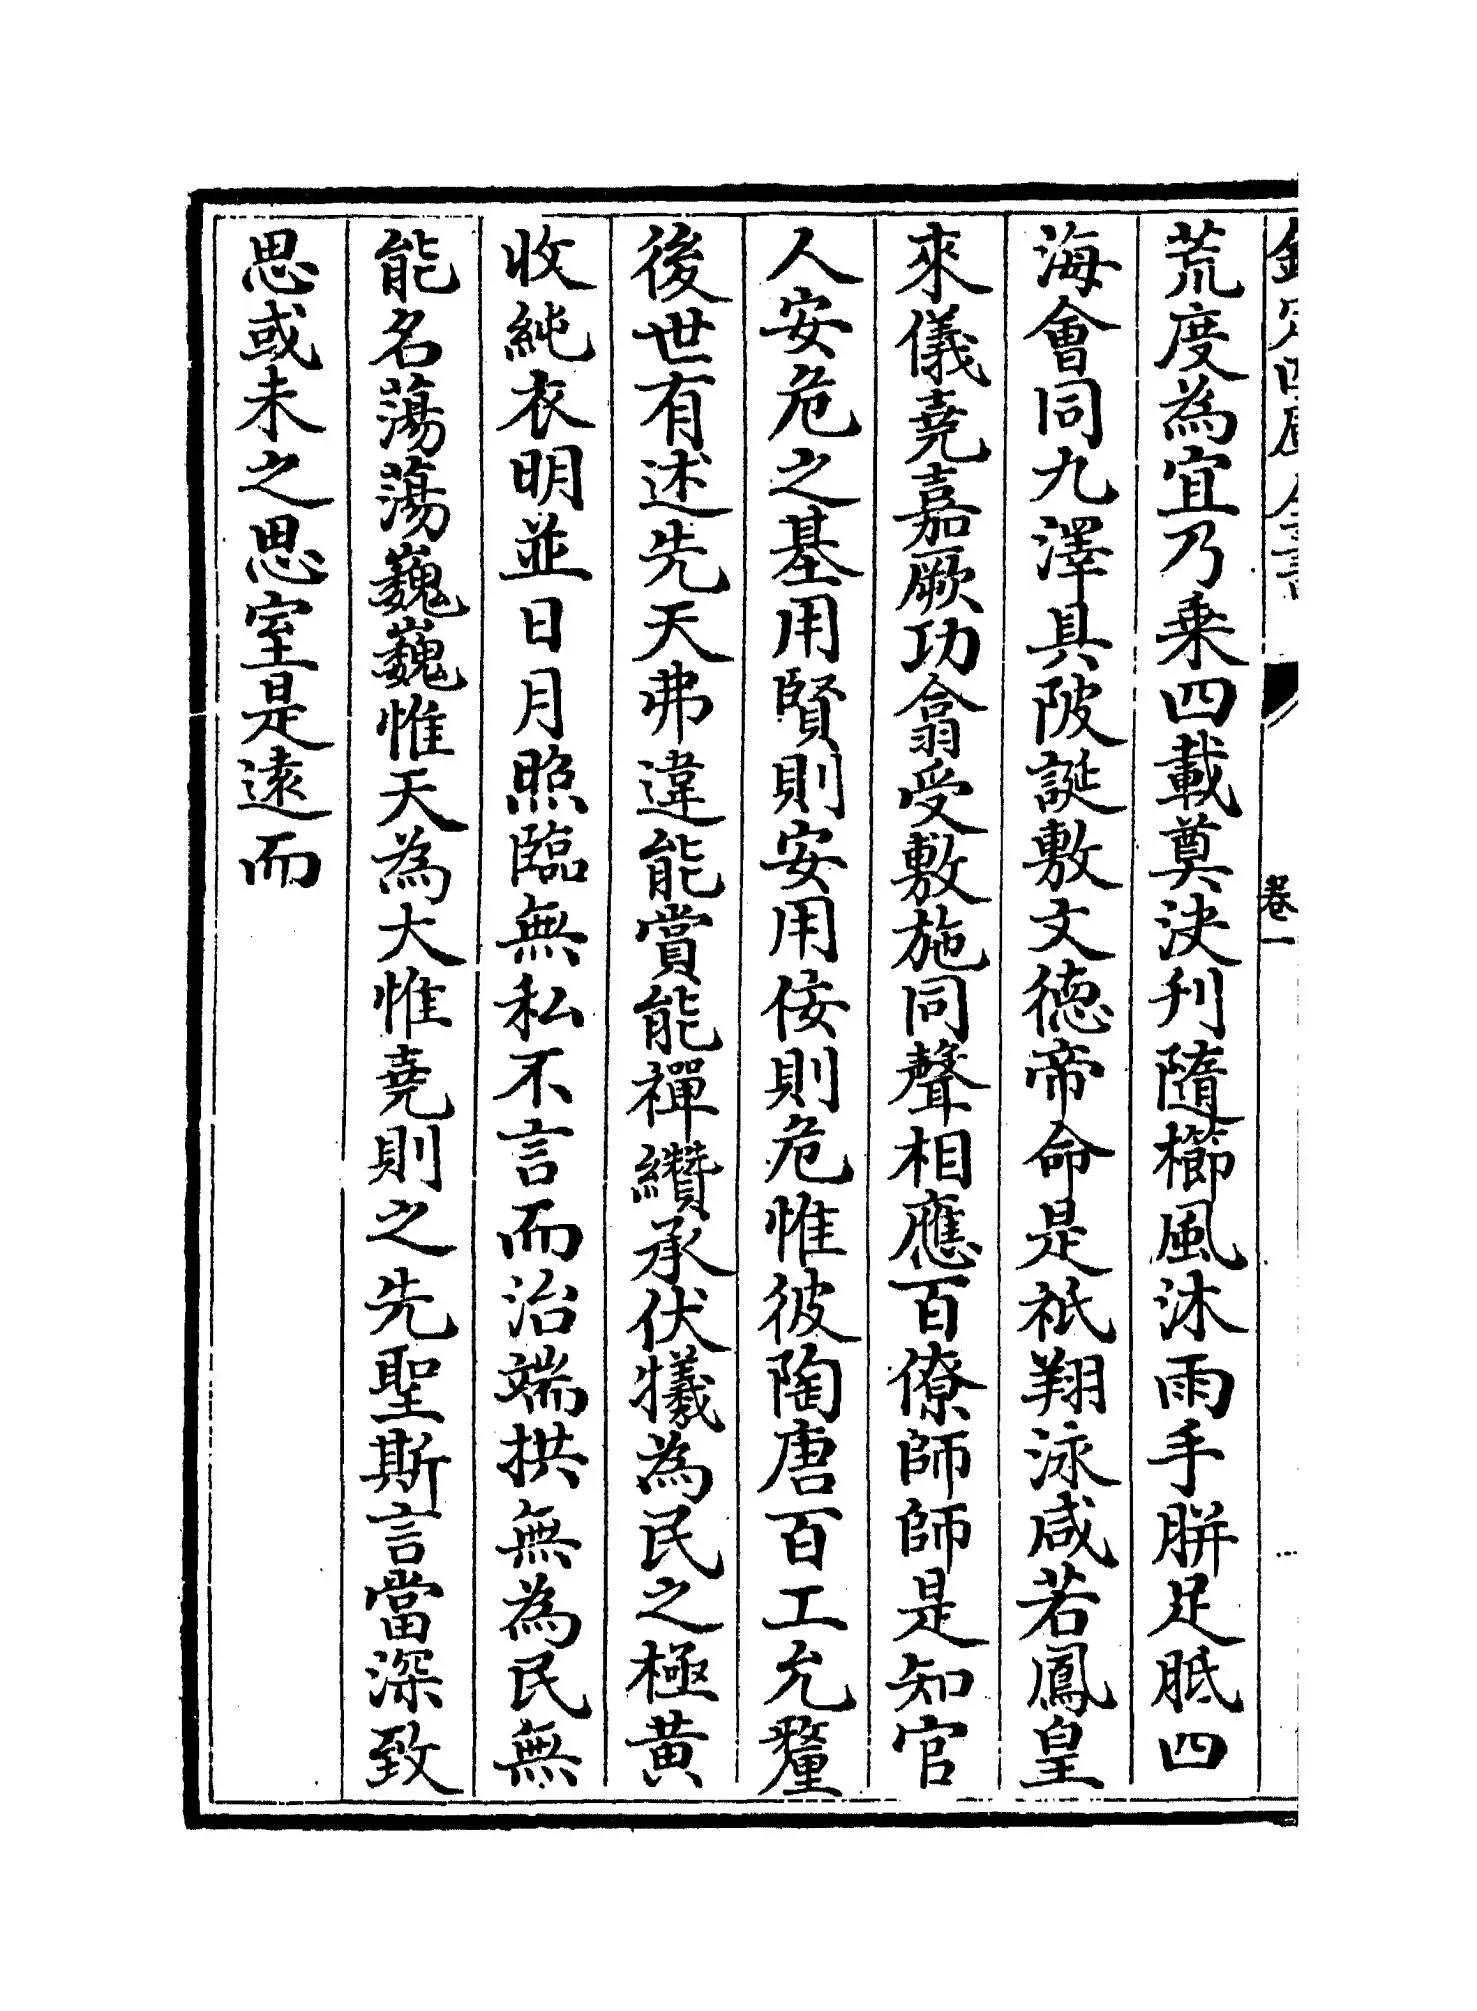 欽定四庫全書
卷一
荒度為宜乃乗四載奠決刋隨櫛風沐雨手胼足胝四
海會同九澤具陂誕敷文德帝命是祇翔泳咸若鳳皇
來儀堯嘉厥功翕受敷施同聲相應百僚師師是知官
人安危之基用賢則安用佞則危惟彼陶唐百工允釐
後世有述先天弗違能賞能禪纘承伏犧為民之極黄
收純衣明並日月照臨無私不言而治端拱無為民無
能名蕩蕩巍巍惟天為大惟堯則之先聖斯言當深致
思或未之思室是逺而